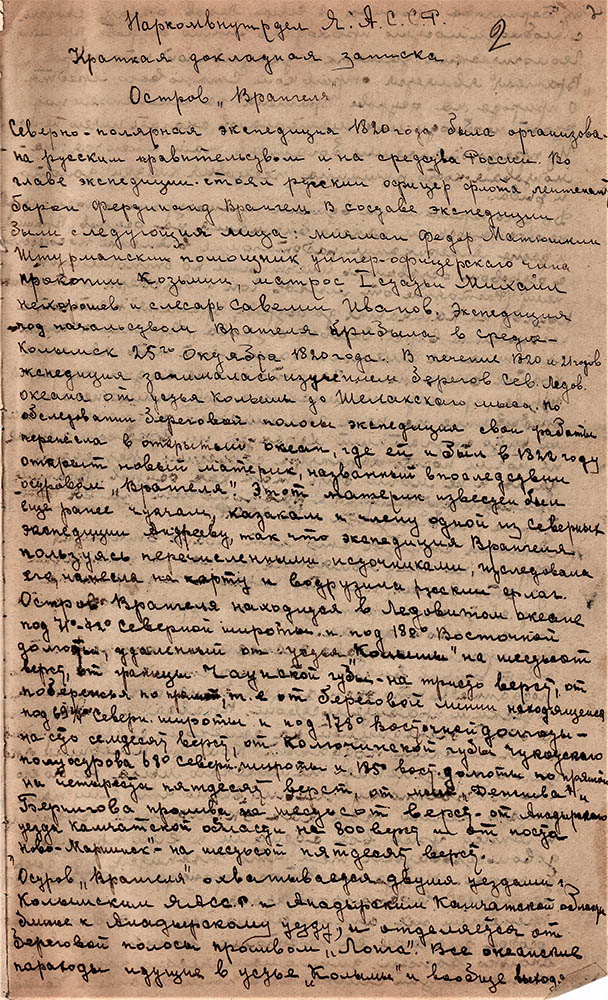 2
2
Наркомвнутрдел Я. А. С. С. Р.
Краткая докладная записка
Остров „Врангеля"
Северно-полярная экспедиция 1820 года была организова-
на русским правительством и на средства России. Во
главе экспедиции стоял русский офицер флота, лейтенант
барон Фердинанд Врангель. В составе экспедиции
были следующия лица: мичман Федор Матюшкин
Штурманский помощник унтер-офицерского чина
Прокопий Козьмин, матрос Михаил
Нехорошев и слесарь Савелий Иванов. Экспедиция
под начальством Врангеля прибыла в Средне-
Колымск 25го Октября 1820 года. В течение 1820 и 21 годов
экспедиция занималась изучением берегов Сев. Ледов.
океана от устья Колымы до Шелакского мыса. По
обследовании береговой полосы экспедиция свои работы
перенесла в открытый океан, где ей и был в 1822 году
открыт новый материк, названный впоследствии
островом „Врангеля". Этот материк известен был
еще ранее чукчам, казакам и члену одной из северных
экспедиции Андрееву, так что экспедиция Врангеля,
пользуясь перечисленными источниками, изследовала
его, нанесла на карту и водрузила русский флаг.
Остров Врангеля находится в Ледовитом океане
под северной широты и под 180° Восточной
долготы, удаленный от устья „Колымы" на шестьсот
верст, от границы Чаунской губы - на триста верст, от
побережья по прямой, т. е. от береговой линии находящейся
под Северн. широты и под Восточной долготы -
на сто семдесят верст, от Колючинской губы Чукотского
полуострова северн. широты и вост. долготы по прямой
на четыреста пятдесят верст, от мыса „Дежнева" и
Берингова пролива на шестьсот верст - от Анадырского
уезда Камчатской области на 800 верст и от поста
Ново-Мариинск" - на шестьсот пятдесят верст.
Остров „Врангеля" охватывается двумя уездами:
Колымским ЯАССР и Анадырским Камчатской области
ближе к Анадырскому уезду, и отделяется от
береговой полосы проливом „Лонга". Все океанские
параходы идущие в устье „Колымы" и вообще выходя